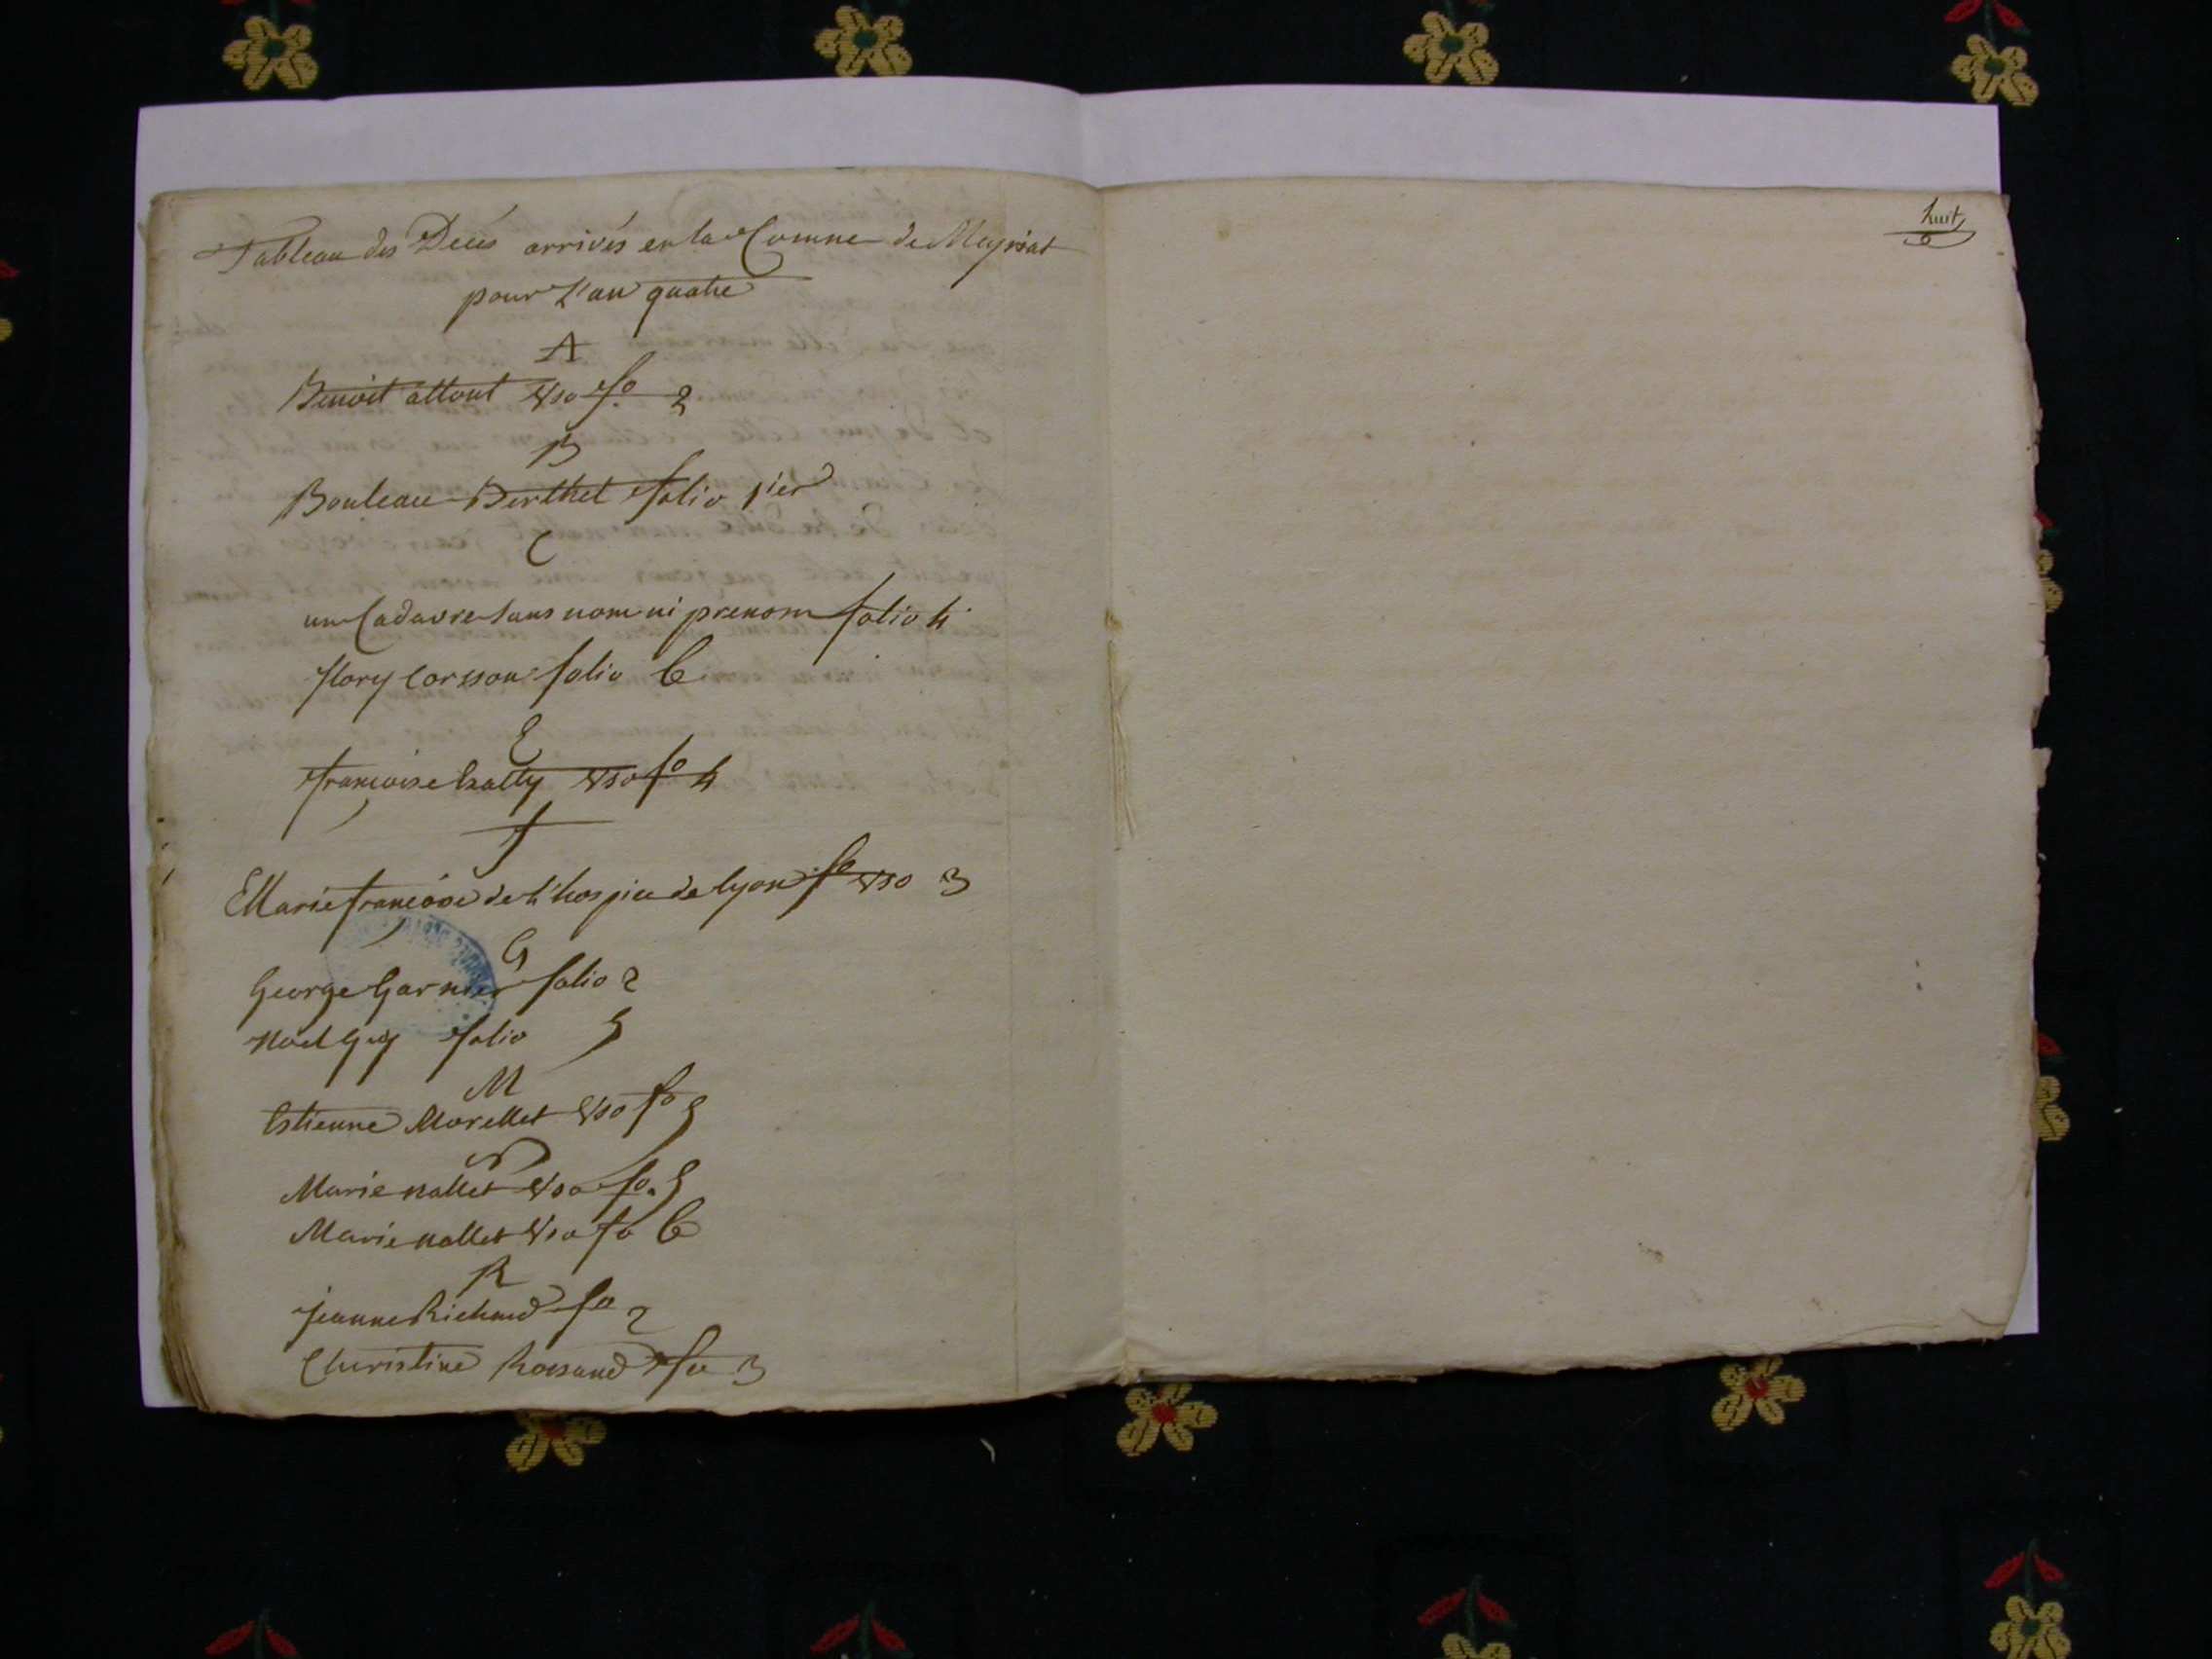 Tableau des Decés arrivés en la Comune de Meyriat
pour L'an quatre
A
Benoit attout vso fo 2
B
Bouleau Berthet folio 1ier
C
un Cadavre sans nom ni prenom folio 4
flory Corsson folio 6
E
francoise Esatty vso fo 4
f
Marie francoise de l'hospice de lyon fo vso 3
G
George Garnier folio 2
Noel Guy folio 5
M
Estienne Morellet vso fo 5
N
Marie nallet vso fo. 5
Marie nallet vso fo 6
R
jeanne Richard fo 2
Christine fo 3
huit